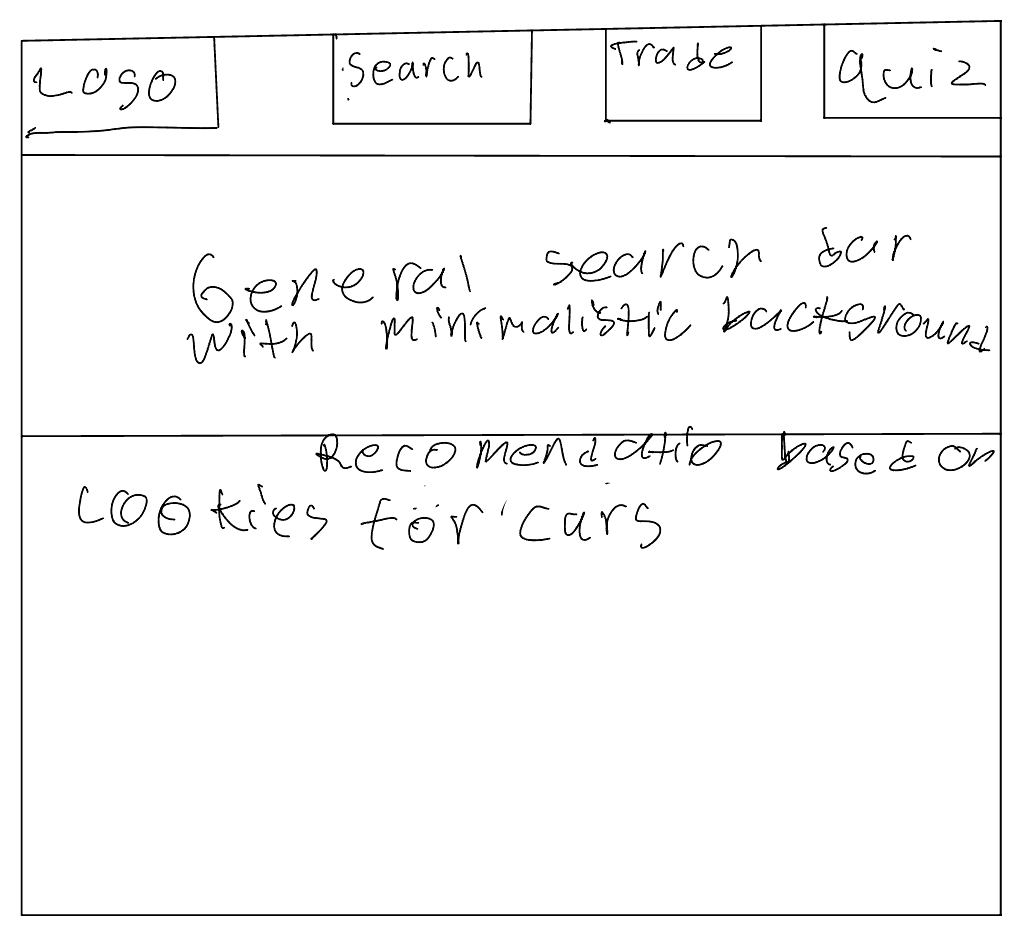 Logo
Search
Trade
Quiz
General search bar
with minimalistic background
Recomendatio based on
cookies for cars